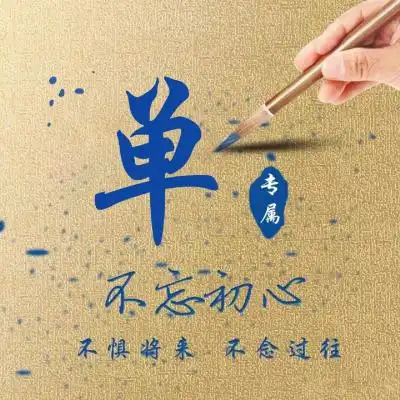 单
专属
不忘初心
不惧将来 不念过往